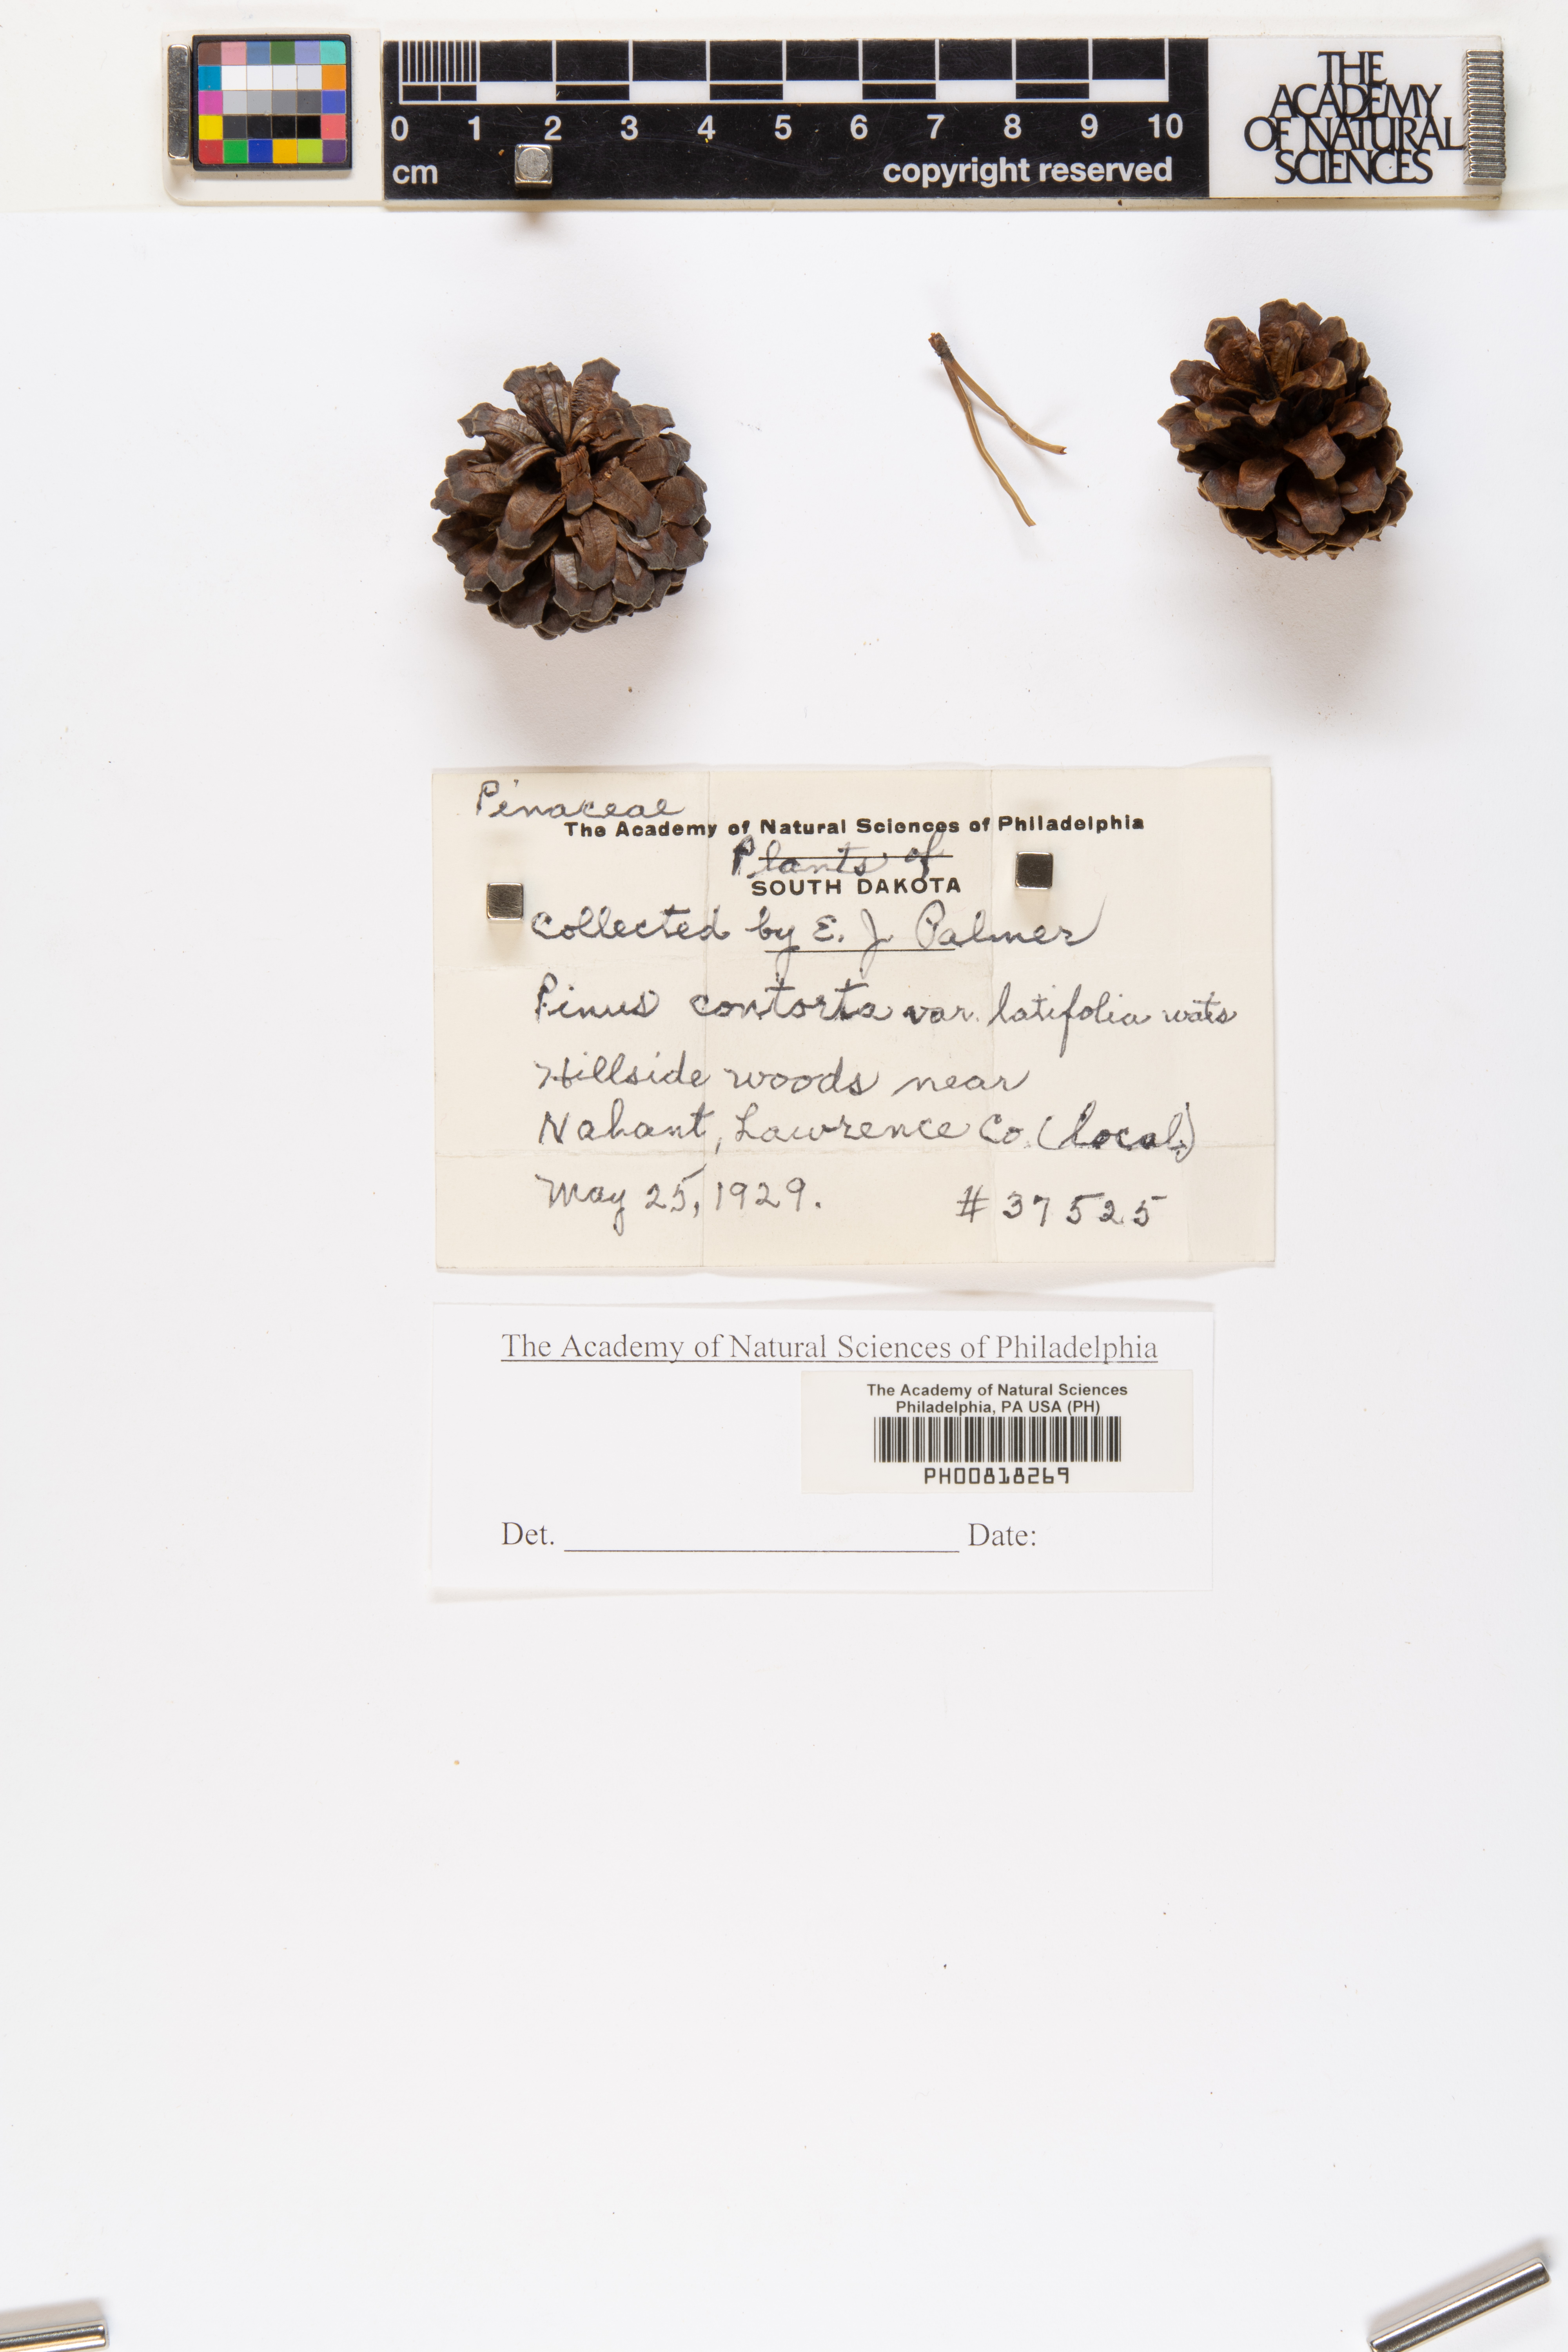 0 1 2 3 4 5 6 7 8 9 10
cm copyright reserved
THE
ACADEMY
OF NATURAL
SCIENCES
Pinaceae
The Academy of Natural Sciences of Philadelphia
Plants of
SOUTH DAKOTA
Collected by E. J. Palmer
Pinus contorta var. latifolia wats
Hillside woods near
Nahant, Lawrence Co. (local)
May 25, 1929. # 37525
The Academy of Natural Sciences of Philadelphia
The Academy of Natural Sciences
Philadelphia, PA USA (PH)
PH00818269
Det. Date: